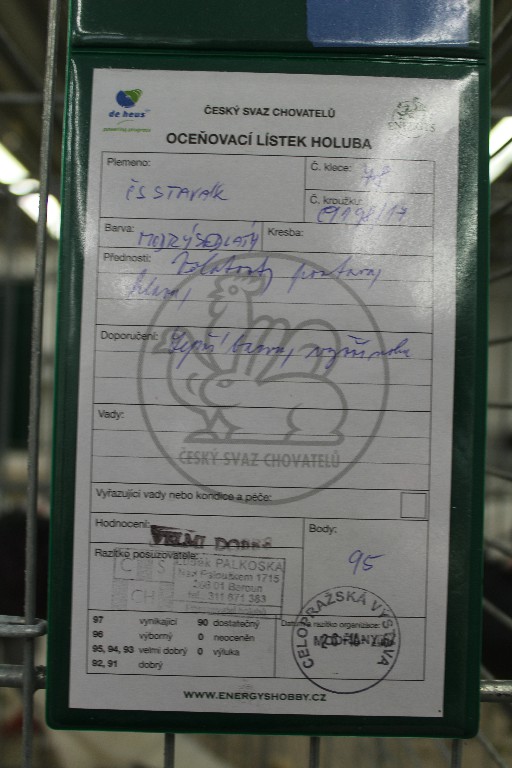 de heus
powering progress
ČESKÝ SVAZ CHOVATELŮ
ENERGYS
OCEŇOVACÍ LÍSTEK HOLUBA
Plemeno:
ČS STAVAK
Č. klece: 78
Č. kroužku:
C1198/17
Barva: MODRÝ SEDLATÝ
Kresba:
Přednosti: postava,
hlava,
Doporučení: Lepší barva,
Vady:
ČESKÝ SVAZ CHOVATELŮ
Vyřazující vady nebo kondice a péče:
Hodnocení: VELMI DOBRÁ
Body:
95
Razítko posuzovatele:
Č S
CH
PALKOSKA
1715
266 01 Beroun
tel. 311 671 383
97 vynikající 90 dostatečný
96 výborný 0 neoceněn
95, 94, 93 velmi dobrý 0 výluka
92, 91 dobrý
razítko organizace:
CELOPRAŽSKÁ VÝSTAVA
MODŘANY
WWW.ENERGYSHOBBY.CZ